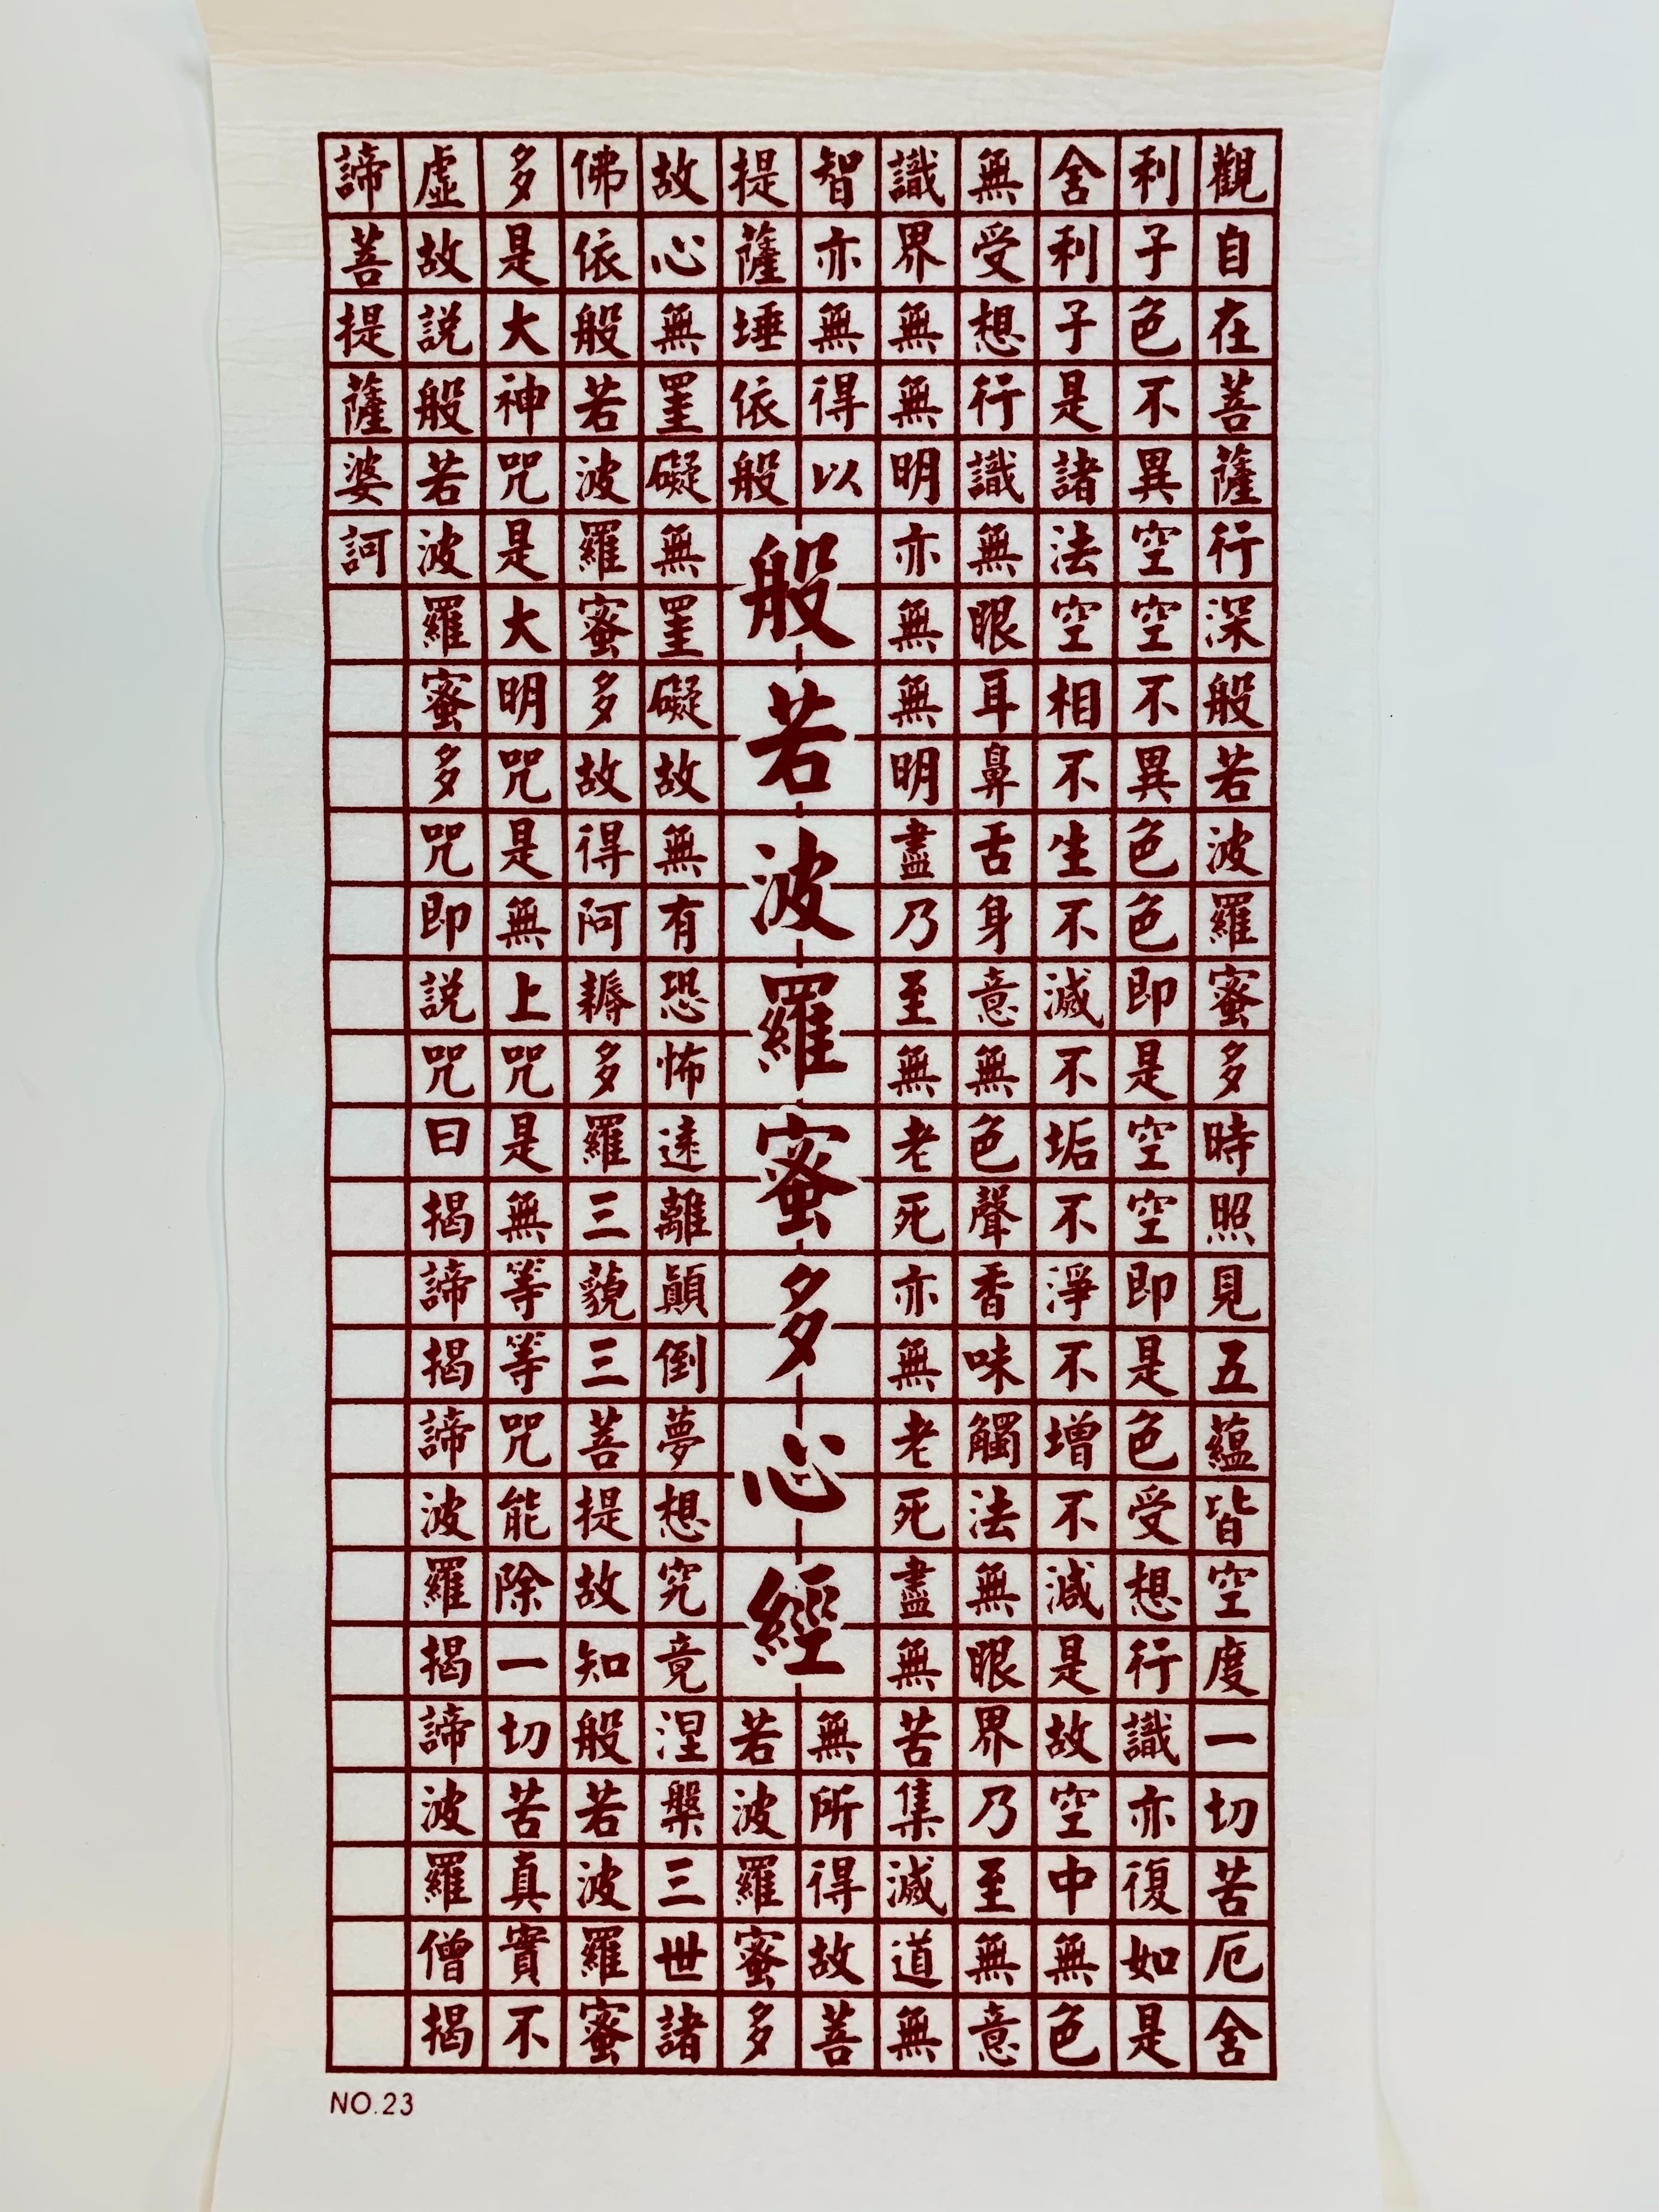 觀自在菩薩行深般若波羅蜜多時照見五蘊皆空度一切苦厄舍
利子色不異空空不異色色即是空空即是色受想行識亦復如是
舍利子是諸法空相不生不滅不垢不淨不增不減是故空中無色
無受想行識無眼耳鼻舌身意無色聲香味觸法無眼界乃至無意
識界無無明亦無無明盡乃至無老死亦無老死盡無苦集滅道無
智亦無得以
無所得故菩
般若波羅蜜多心經
提薩埵依般
若波羅蜜多
故心無罣礙無罣礙故無有恐怖遠離顛倒夢想究竟涅槃三世諸
佛依般若波羅蜜多故得阿耨多羅三藐三菩提故知般若波羅蜜
多是大神咒是大明咒是無上咒是無等等咒能除一切苦真實不
虛故說般若波羅蜜多咒即說咒曰揭諦揭諦波羅揭諦波羅僧揭
諦菩提薩婆訶
NO.23